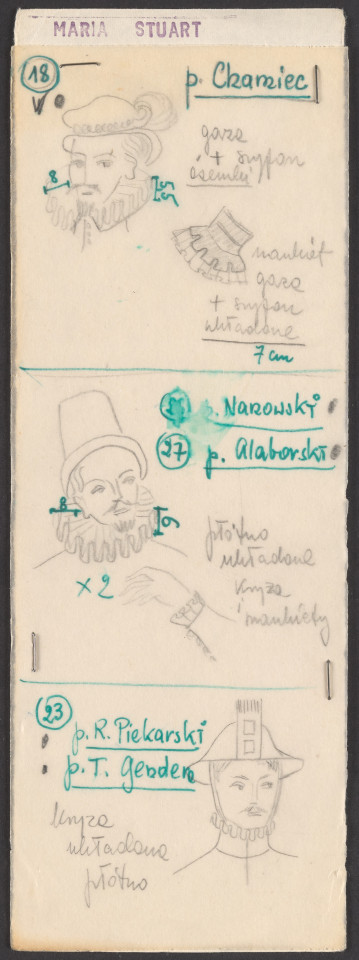 MARIA STUART
18
p. Czarniec
gaza
+ szyfon
ósemki
8
5,5
mankiet
gaza
+ szyfon
układane
7 cm
p. Narowski
27
p. Alaborski
8
9
x 2
płótno
układane
kryza
i mankiety
23
p. R. Piekarski
p. T. Genden
kryza
układana
płótno